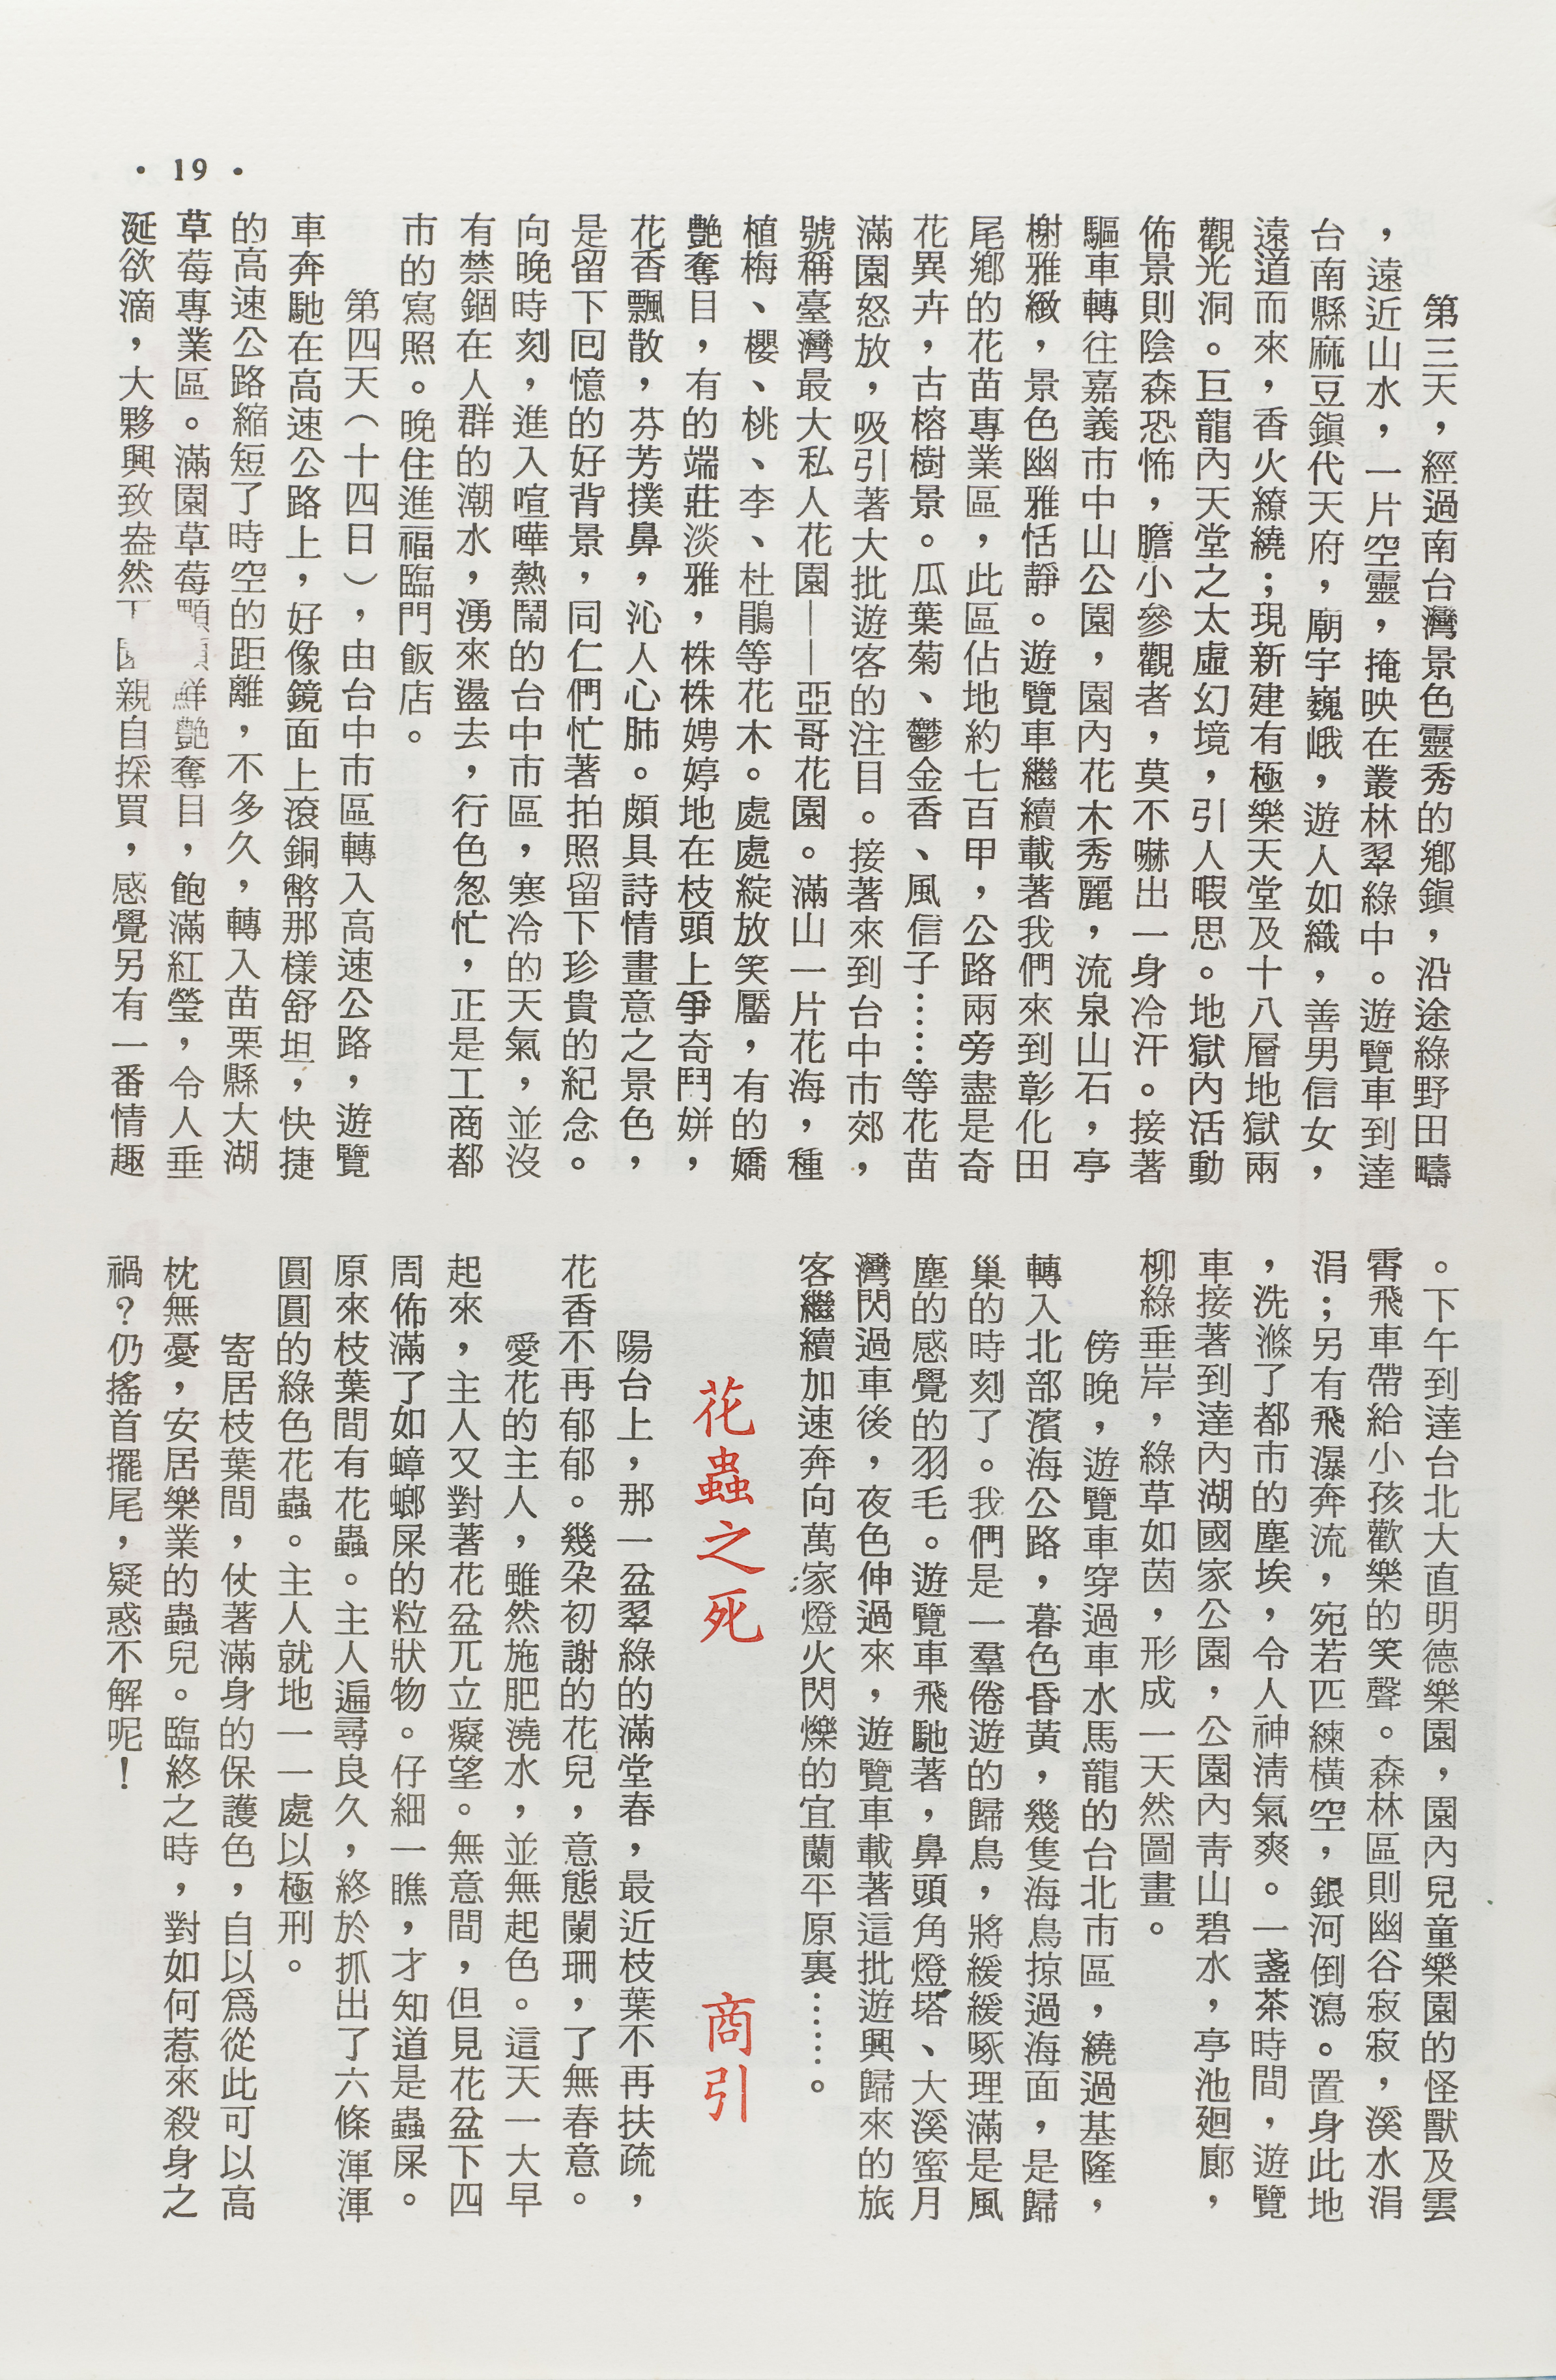 • 19 •
第三天，經過南台灣景色靈秀的鄉鎭，沿途綠野田疇
，遠近山水，一片空靈，掩映在叢林翠綠中。遊覽車到達
台南縣麻豆鎭代天府，廟宇巍峨，遊人如織，善男信女，
遠道而來，香火繚繞；現新建有極樂天堂及十八層地獄兩
觀光洞。巨龍內天堂之太虛幻境，引人暇思。地獄內活動
佈景則陰森恐怖，膽小參觀者，莫不嚇出一身冷汗。接著
驅車轉往嘉義市中山公園，園內花木秀麗，流泉山石，亭
榭雅緻，景色幽雅恬靜。遊覽車繼續載著我們來到彰化田
尾鄉的花苗專業區，此區佔地約七百甲，公路兩旁盡是奇
花異卉，古榕樹景。瓜葉菊、鬱金香、風信子……等花苗
滿園怒放，吸引著大批遊客的注目。接著來到台中市郊，
號稱臺灣最大私人花園——亞哥花園。滿山一片花海，種
植梅、櫻、桃、李、杜鵑等花木。處處綻放笑靨，有的嬌
艷奪目，有的端莊淡雅，株株娉婷地在枝頭上爭奇鬥姸，
花香飄散，芬芳撲鼻，沁人心肺。頗具詩情畫意之景色，
是留下回憶的好背景，同仁們忙著拍照留下珍貴的紀念。
向晚時刻，進入喧嘩熱鬧的台中市區，寒冷的天氣，並沒
有禁錮在人群的潮水，湧來盪去，行色怱忙，正是工商都
市的寫照。晚住進福臨門飯店。
第四天（十四日），由台中市區轉入高速公路，遊覽
車奔馳在高速公路上，好像鏡面上滾銅幣那樣舒坦，快捷
的高速公路縮短了時空的距離，不多久，轉入苗栗縣大湖
草莓專業區。滿園草莓顆顆鮮艷奪目，飽滿紅瑩，令人垂
涎欲滴，大夥興致盎然下園親自採買，感覺另有一番情趣
。下午到達台北大直明德樂園，園內兒童樂園的怪獸及雲
霄飛車帶給小孩歡樂的笑聲。森林區則幽谷寂寂，溪水涓
涓；另有飛瀑奔流，宛若匹練橫空，銀河倒瀉。置身此地
，洗滌了都市的塵埃，令人神淸氣爽。一盞茶時間，遊覽
車接著到達內湖國家公園，公園內靑山碧水，亭池廻廊，
柳綠垂岸，綠草如茵，形成一天然圖畫。
傍晚，遊覽車穿過車水馬龍的台北市區，繞過基隆，
轉入北部濱海公路，暮色昏黃，幾隻海鳥掠過海面，是歸
巢的時刻了。我們是一羣倦遊的歸鳥，將緩緩啄理滿是風
塵的感覺的羽毛。遊覽車飛馳著，鼻頭角燈塔、大溪蜜月
灣閃過車後，夜色伸過來，遊覽車載著這批遊興歸來的旅
客繼續加速奔向萬家燈火閃爍的宜蘭平原裏……。
花蟲之死　商引
陽台上，那一盆翠綠的滿堂春，最近枝葉不再扶疏，
花香不再郁郁。幾朶初謝的花兒，意態闌珊，了無春意。
愛花的主人，雖然施肥澆水，並無起色。這天一大早
起來，主人又對著花盆兀立癡望。無意間，但見花盆下四
周佈滿了如蟑螂屎的粒狀物。仔細一瞧，才知道是蟲屎。
原來枝葉間有花蟲。主人遍尋良久，終於抓出了六條渾渾
圓圓的綠色花蟲。主人就地一一處以極刑。
寄居枝葉間，仗著滿身的保護色，自以爲從此可以高
枕無憂，安居樂業的蟲兒。臨終之時，對如何惹來殺身之
禍？仍搖首擺尾，疑惑不解呢！